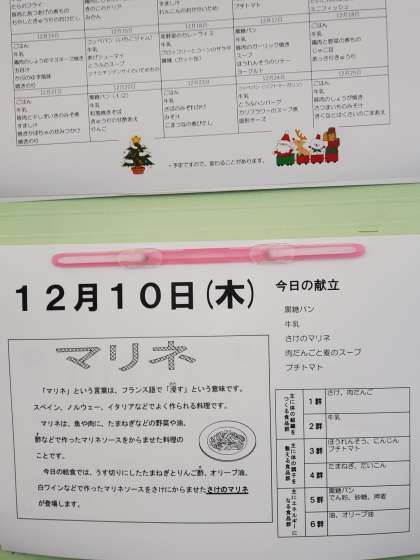 たらのフライ
豚肉と厚つあげの煮もの
もやしときゅうりのおひたし
きのこのソテー
みかん
すましけ
れんこんのおかかいため
プチトマト
ミニフィッシュ
12月14日
12月15日
12月16日
12月17日
12月18日
ごはん
牛乳
かぶのゆず風味
焼きのり
牛乳
あげシューマイ
とうふのスープ
牛乳
豚肉のガーリック焼き
スープ
ほうれんそうのソテー
ヨーグルト
ごはん
牛乳
鶏肉と野菜の煮もの
じゃこ豆
あっさりきゅうり
12月21日
12月22日
12月24日
12月25日
ごはん
牛乳
すましけ
焼きのり
黒糖パン
牛乳
松風焼き
きゅうりの甘酢あえ
りんご
ごはん
牛乳
さばのみぞれかけ
みそ汁
こまつなの煮びたし
牛乳
とうふハンバーグ
カリフラワーのスープ煮
固形チーズ
ごはん
牛乳
豚肉のしょうが焼き
さつまいものみそ汁
きくなとはくさいのごまあえ
・予定ですので、変わることがあります。
12月10日(木)
今日の献立
黒糖パン
牛乳
さけのマリネ
肉だんごと麦のスープ
プチトマト
マリネ
「マリネ」という言葉は、フランス語で「浸す」という意味です。
スペイン、ノルウェー、イタリアなどでよく作られる料理です。
マリネは、魚や肉に、たまねぎなどの野菜や油、
酢などで作ったマリネソースをからませた料理の
ことです。
今日の給食では、うす切りにしたたまねぎとりんご酢、オリーブ油、
白ワインなどで作ったマリネソースをさけにからませたさけのマリネ
が登場します。
主に体の組織をつくる食品群
1群
さけ、肉だんご
2群
牛乳
主に体の調子を整える食品群
3群
ほうれんそう、にんじん
プチトマト
4群
たまねぎ、だいこん
主にエネルギーになる食品群
5群
黒糖パン
でん粉、砂糖、押麦
6群
油、オリーブ油